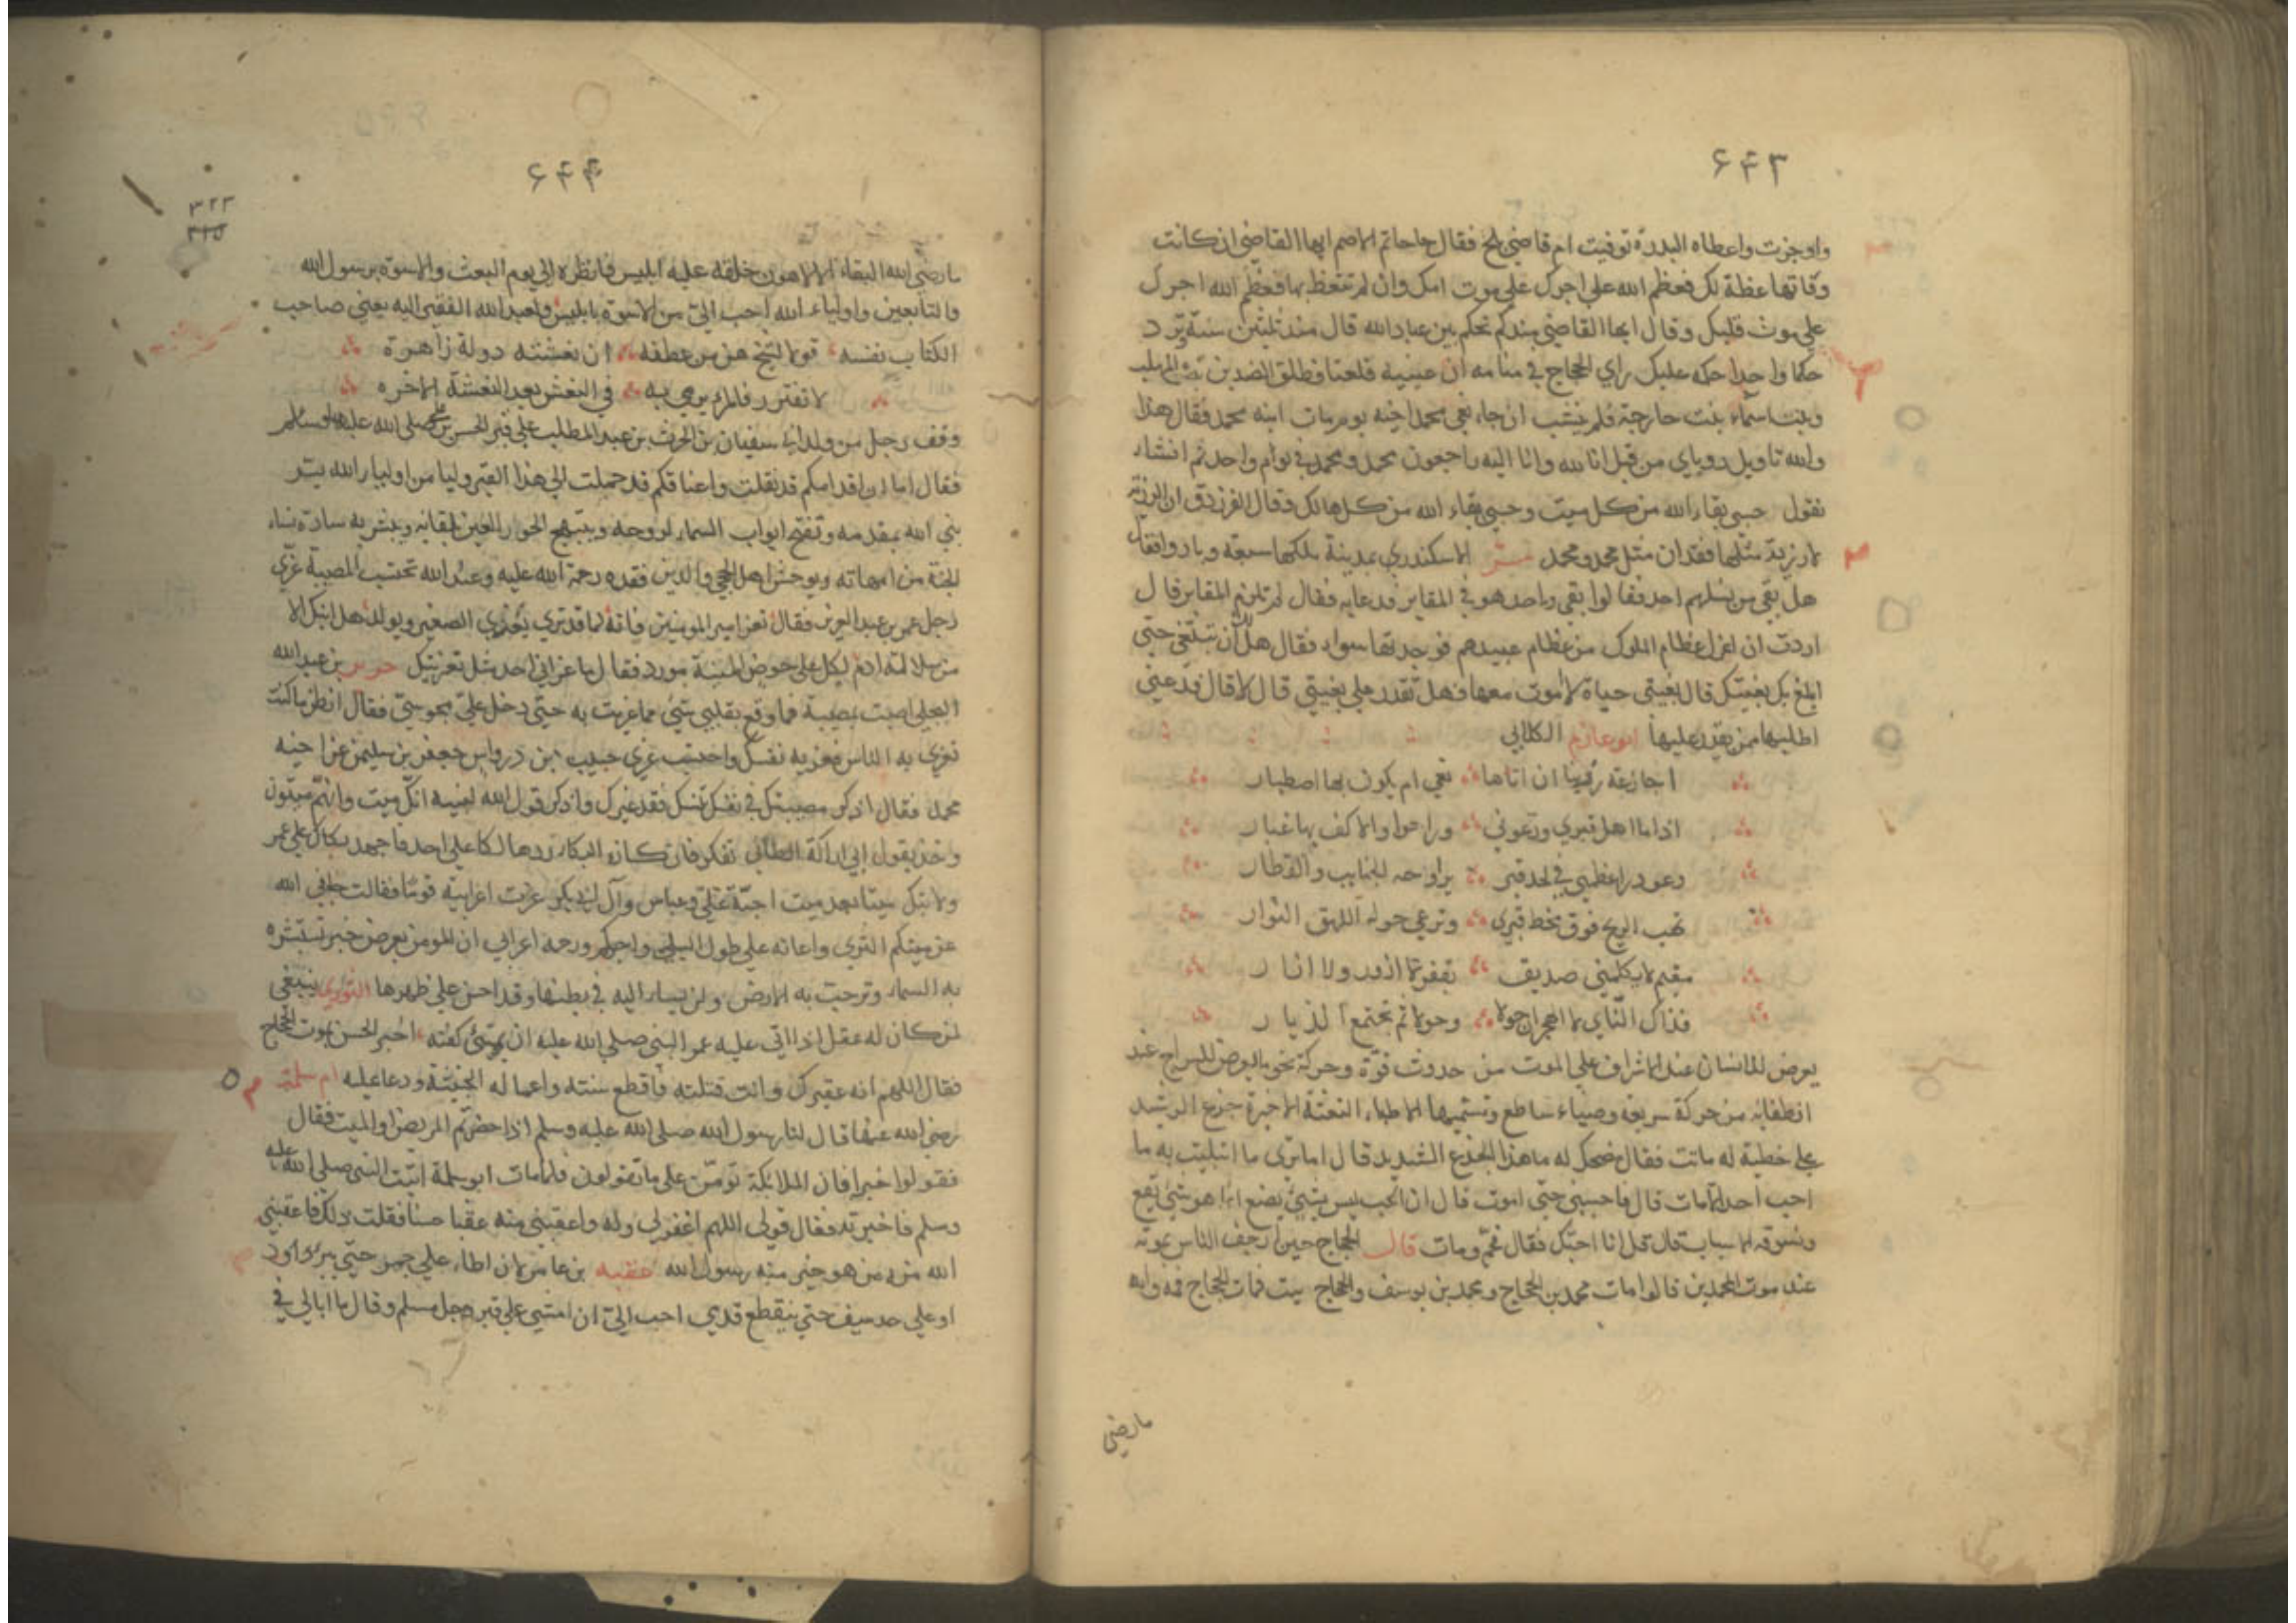 ۶۴۳
واوجزت واعطاه البدرة توفيت ام قاضي بلخ فقال حاتم الاصم ايها القاضي ان كانت
وفاتها عظة لك فعظم الله علي اجرك علي موت امك وان لم تتعظ بها فعظم الله اجرك
علي موت قلبك وقال ايها القاضي منذكم تحكم بين عباد الله قال منذ ثلثين سنة يرد
حكما واحدا حكمه عليك راي الحجاج في منامه ان عينيه قلعتا فطلق الهندين المهلب
وبنت اسماء بنت خارجة فلم ينشب ان جاء نعي محمد اخيه يوم مات ابنه محمد فقال هذا
والله تاويل روياي من قبل انا لله وانا اليه راجعون محمد ومحمد في يوم واحد ثم انشاء
نقول حسبي بقاء الله من كل ميت وحسبي بقاء الله من كل هالك وقال الفرزدق ان الرزية
لا رزية مثلها فقدان مثل محمد ومحمد الاسكندر بمدينة ملكها سبعة وبادوا فقال
هل بقي من نسلهم احد فقالوا بقي واحد هو في المقابر فدعا به فقال لم تلزم المقابر قال
اردت ان اعزل عظام الملوك من عظام عبيدهم فوجدتها سواء فقال هل ان تتبعني حتي
ابلغ بك بغيتك قال بغيتي حياة لا موت معها فهل تقدر علي بغيتي قال لا قال فدعني
اطلبها ممن يقدر عليها ابو عازم الكلابي
اجازعة ان اتاها نعي ام يكون بها اصطبار
اذا ما اهل قبري ودعوني وراحوا والاكف بها غبار
وغودر اعظمي في لحد قبر يراوحه الجنايب والقطار
تهب الريح فوق مخط قبري وترعي حوله اللهق النوار
مقيم لا يكلمني صديق بقفر لا ازور ولا ازار
فذاك النأي لا الهجران حولا وحولا ثم تجتمع الديار
يعرض للانسان عند الاشراف علي الموت من حدوث قوة وحركة نحو ما يعرض للسراج عند
انطفائه من حركة سريعة وضياء ساطع وتسميها الاطباء النعشة الاخيرة جزع الرشيد
علي حظية له ماتت فقال مضحك له ما هذا الجزع الشديد قال اما تري ما ابتليت به ما
احب احدا الا مات قال فاحببني حتي اموت قال ان الحب ليس بشيئ يصنع انما هو شيئ يقع
وتسوقه الاسباب قال قل انا احبك فقال نعم ومات قال الحجاج حين ارجف الناس بموته
عند موت المحمدين قالوا مات محمد بن الحجاج ومحمد بن يوسف والحجاج ميت فمات الحجاج فمه والله
ما رضي
۶۴۴
۳۲۳
ما رضي الله البقاء الا لاهون خلقه عليه ابليس فانظره الي يوم البعث والاسوة برسول الله
والتابعين واولياء الله احب الي من الاسوة بابليس ولعبد الله الفقير اليه يعني صاحب
الكتاب نفسه قولا لشيخ هز من عطفه ان نعشته دولة زاهرة
لا تغترر فالمرء يرمي به في النعش بعد النعشة الاخره
وقف رجل من ولد ابي سفيان بن الحرث بن عبد المطلب علي قبر الحسن بن علي صلي الله عليه وسلم
فقال اما ان اقدامكم قد نقلت واعناقكم قد حملت الي هذا القبر وليا من اولياء الله يسر
نبي الله بمقدمه وتفتح ابواب السماء لروحه ويبتهج الحور العين بلقائه ويبشر به سادة نساء
الجنة من امهاته ويوحش اهل الحجي والدين فقده رحمة الله عليه وعند الله تحتسب المصيبة عزي
رجل عمر بن عبد العزيز فقال تعز امير المومنين فانه لما قد تري يغذي الصغير ويولد هل ابنك الا
من سلالة ادم لكل علي حوض المنية مورد فقال ما عزاني احد مثل تعزيتك جرير بن عبد الله
البجلي اصبت بمصيبة فما وقع بقلبي شيئ مما عزيت به حتي دخل علي مجوسي فقال انظر ما كنت
تعزي به الناس فعز به نفسك واحتسب عزي حبيب ابن درواس جعفر بن سليمن عن اخيه
محمد فقال اذكر مصيبتك في نفسك تنسك فقد غيرك واذكر قول الله لنبيه انك ميت وانهم ميتون
وخذ بقول ابي اراكة الطائي تفكر فان كان البكا رد هالكا علي احد فاجهد بكاك علي عمر
ولا تبك ميتا بعد ميت اجنه علي وعباس وآل ابي بكر عزت اعرابية قوما فقالت جافي الله
عن ميتكم الثري واعانه علي طول البلي واجركم ورحمه اعرابي ان المومن يعرض خبر تستبشره
به السماء وترحب به الارض ولن يساء اليه في بطنها وقد احسن علي ظهرها الثوري ينبغي
لمن كان له عقل اذا اتي عليه عمر النبي صلي الله عليه ان يهيئ كفنه اخبر الحسن بموت الحجاج
فقال اللهم انه عقيرك وانت قتلته فاقطع سنته واعماله الخبيثة ودعا عليه ام سلمة
رضي الله عنها قال لنا رسول الله صلي الله عليه وسلم اذا حضرتم المريض او الميت فقال
فقولوا خيرا فان الملائكة تومن علي ما تقولون فلما مات ابو سلمة اتيت النبي صلي الله عليه
وسلم فاخبرته فقال قولي اللهم اغفر لي وله واعقبني منه عقبا حسنا فقلت ذلك فاعقبني
الله من هو خير منه رسول الله عقبه بن عامر لان اطاء علي جمر حتي يبرد
او علي حد سيف حتي ينقطع قدمي احب الي ان امشي علي قبر رجل مسلم وقال ما ابالي في